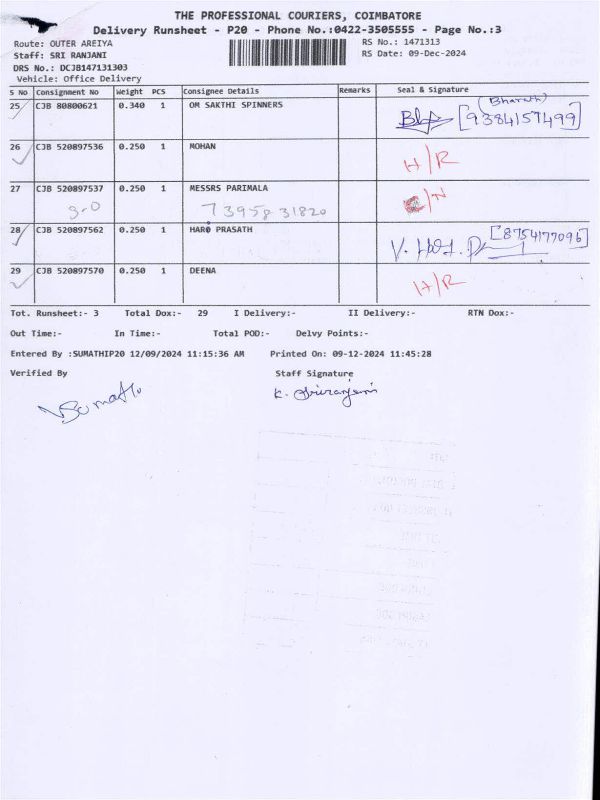 THE PROFESSIONAL COURIERS, COIMBATORE
Delivery Runsheet - P20 - Phone No.:0422-3505555 - Page No.:3
Route: OUTER AREIYA RS No.: 1471313
Staff: SRI RANJANI RS Date: 09-Dec-2024
DRS No.: DCJB147131303
Vehicle: Office Delivery
S No Consignment No Weight PCS Consignee Details Remarks Seal & Signature
25 CJB 80800621 0.340 1 OM SAKTHI SPINNERS (Bharath) [9384157499]
26 CJB 520897536 0.250 1 MOHAN H/R
27 CJB 520897537 0.250 1 MESSRS PARIMALA C/N
73958 31820
28 CJB 520897562 0.250 1 HARI PRASATH [8754177096]
29 CJB 520897570 0.250 1 DEENA H/R
Tot. Runsheet:- 3 Total Dox:- 29 I Delivery:- II Delivery:- RTN Dox:-
Out Time:- In Time:- Total POD:- Delvy Points:-
Entered By :SUMATHIP20 12/09/2024 11:15:36 AM Printed On: 09-12-2024 11:45:28
Verified By Staff Signature
Sumathi K. Sriranjani